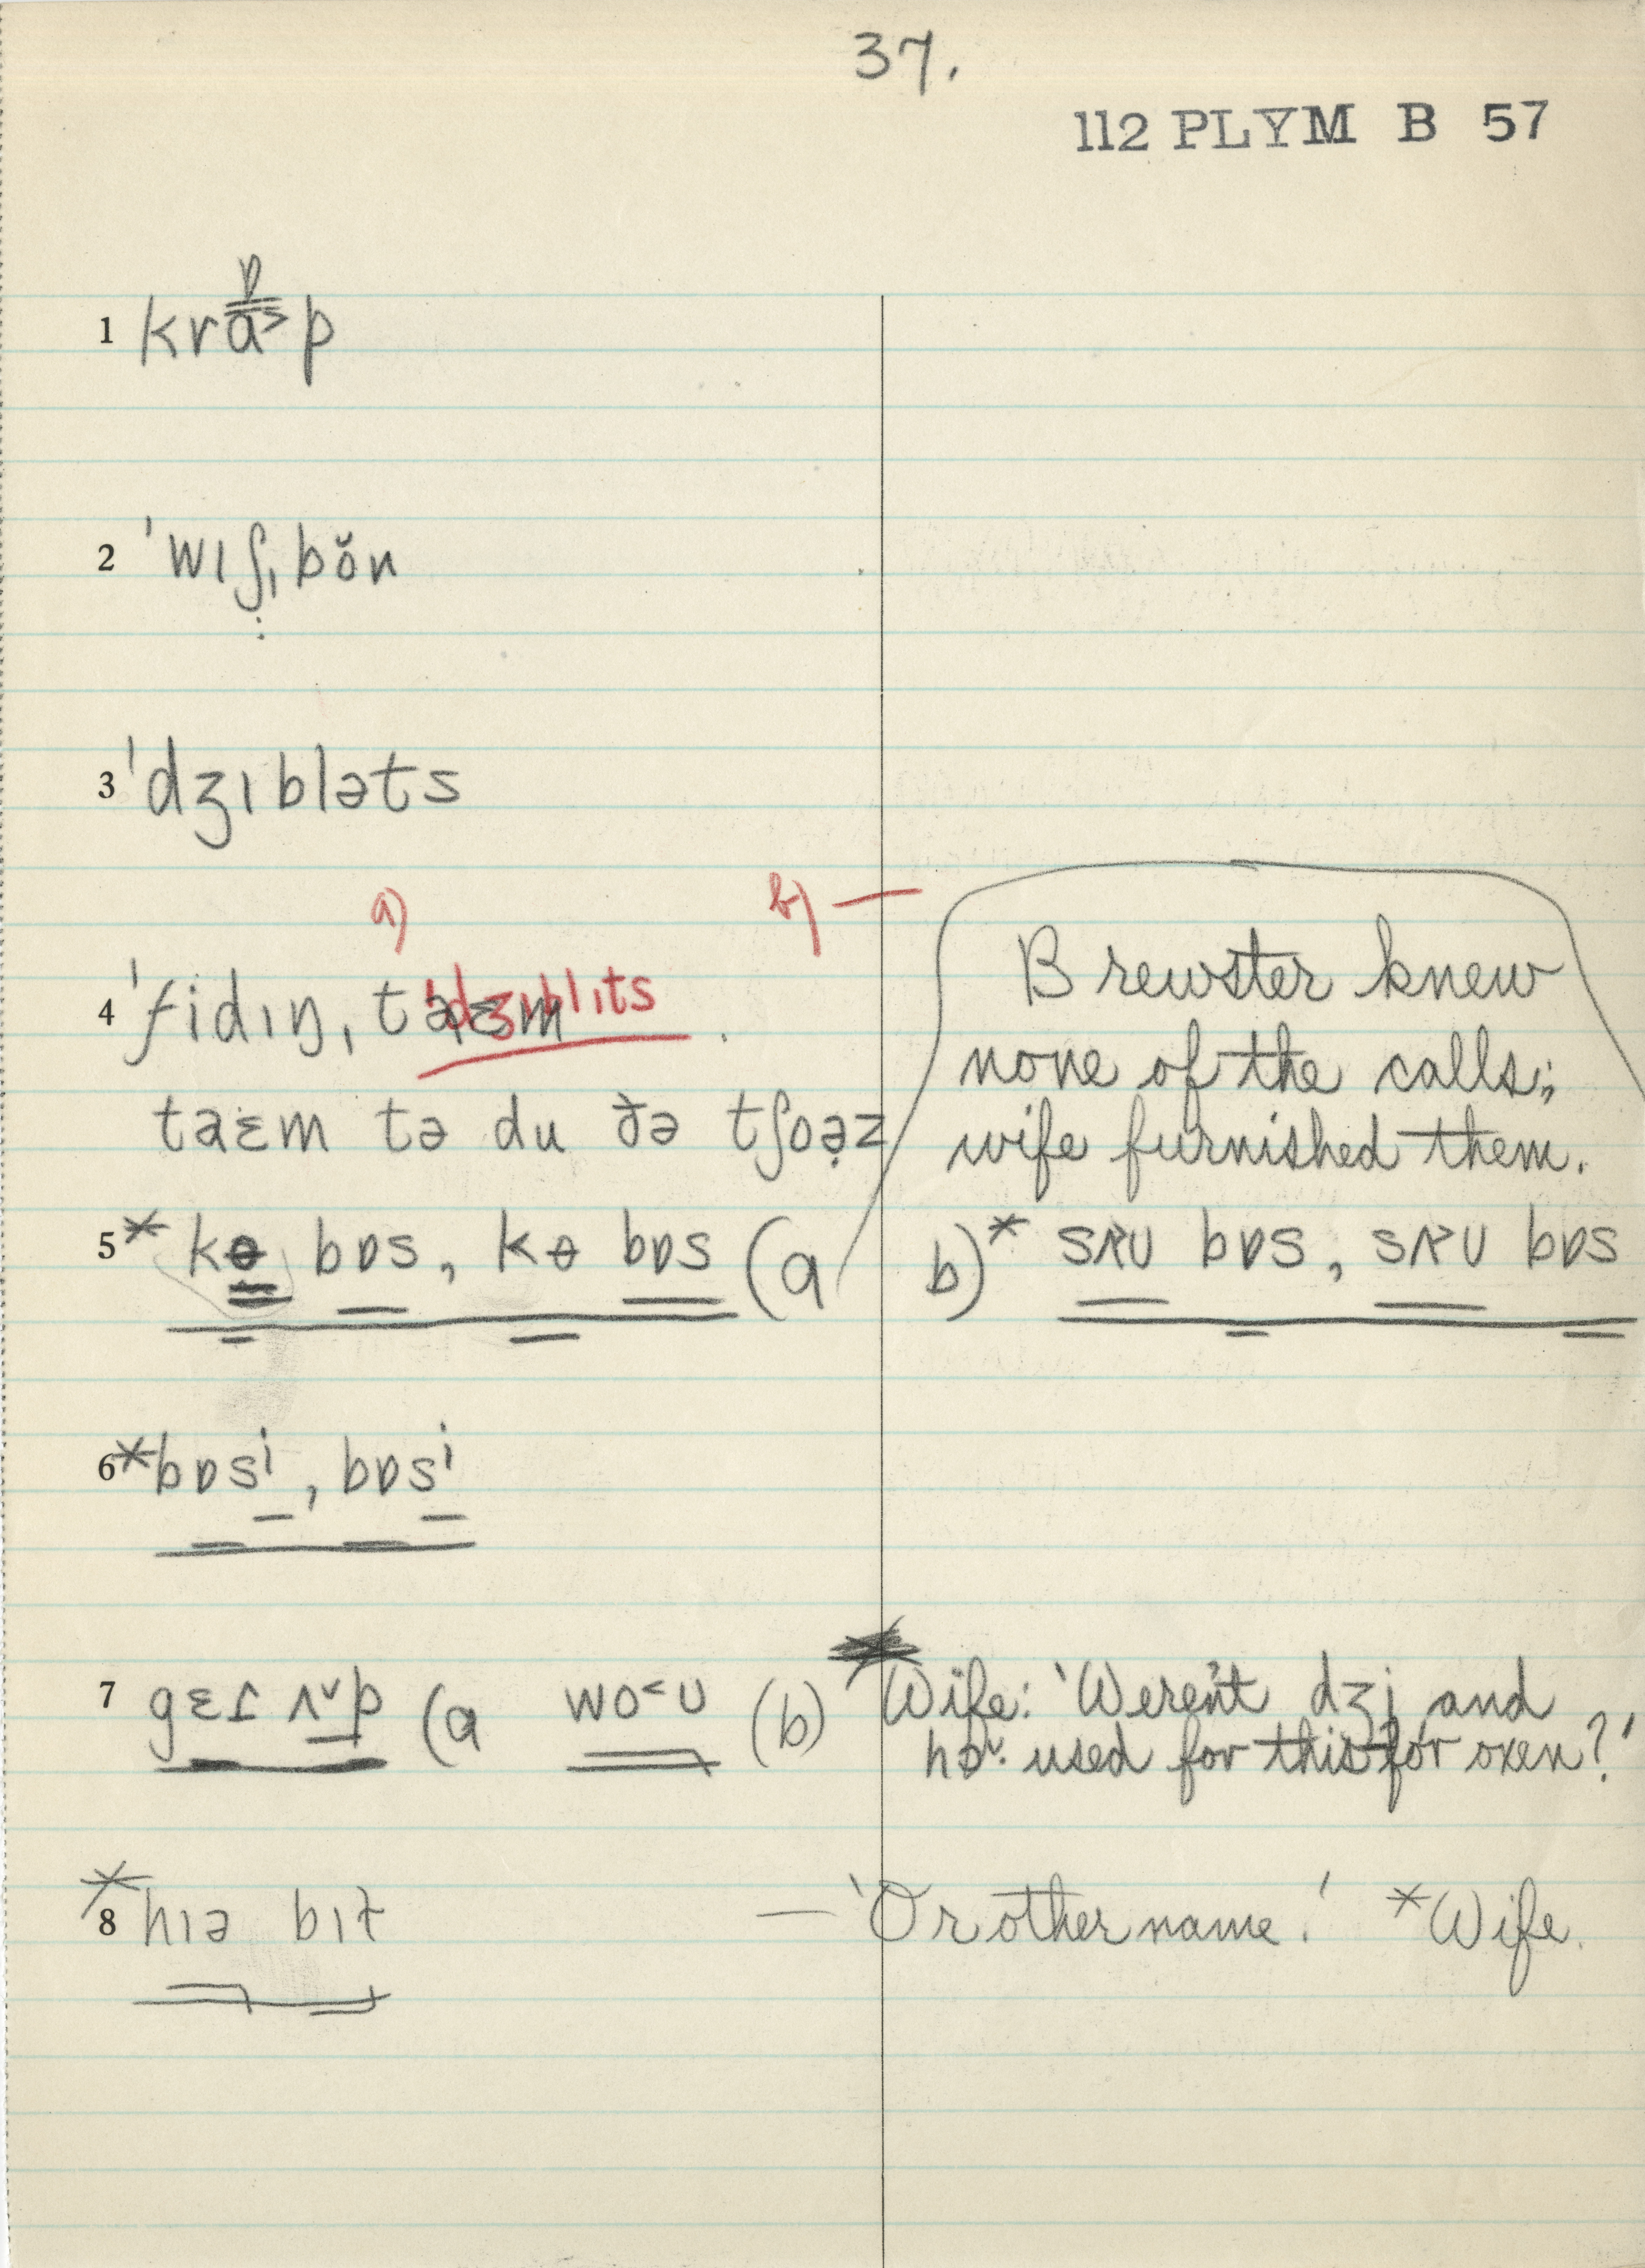 37.
112 PLYM B 57
1 krɒa˃p
2 ˈwɪʃˌbŏn
3 ˈdʒɪbləts
a) b) —
4 ˈfidɪŋ, taɛm ˈdʒɪblɪts .
taɛm tə du ðə tʃoə̣z
Brewster knew
none of the calls;
wife furnished them.
5 * kɵ bɒs, kɵ bɒs (a b)* sʌʊ bɒs, sʌʊ bɒs
6 *bɒsⁱ, bɒsⁱ
7 gɛɾ ʌ˅p (a wo˂ʊ (b) Wife: 'Weren't dʒi and
hɒ˅· used for this for oxen?'
8 *hɪə bɪɫ — 'Or other name.' *Wife.